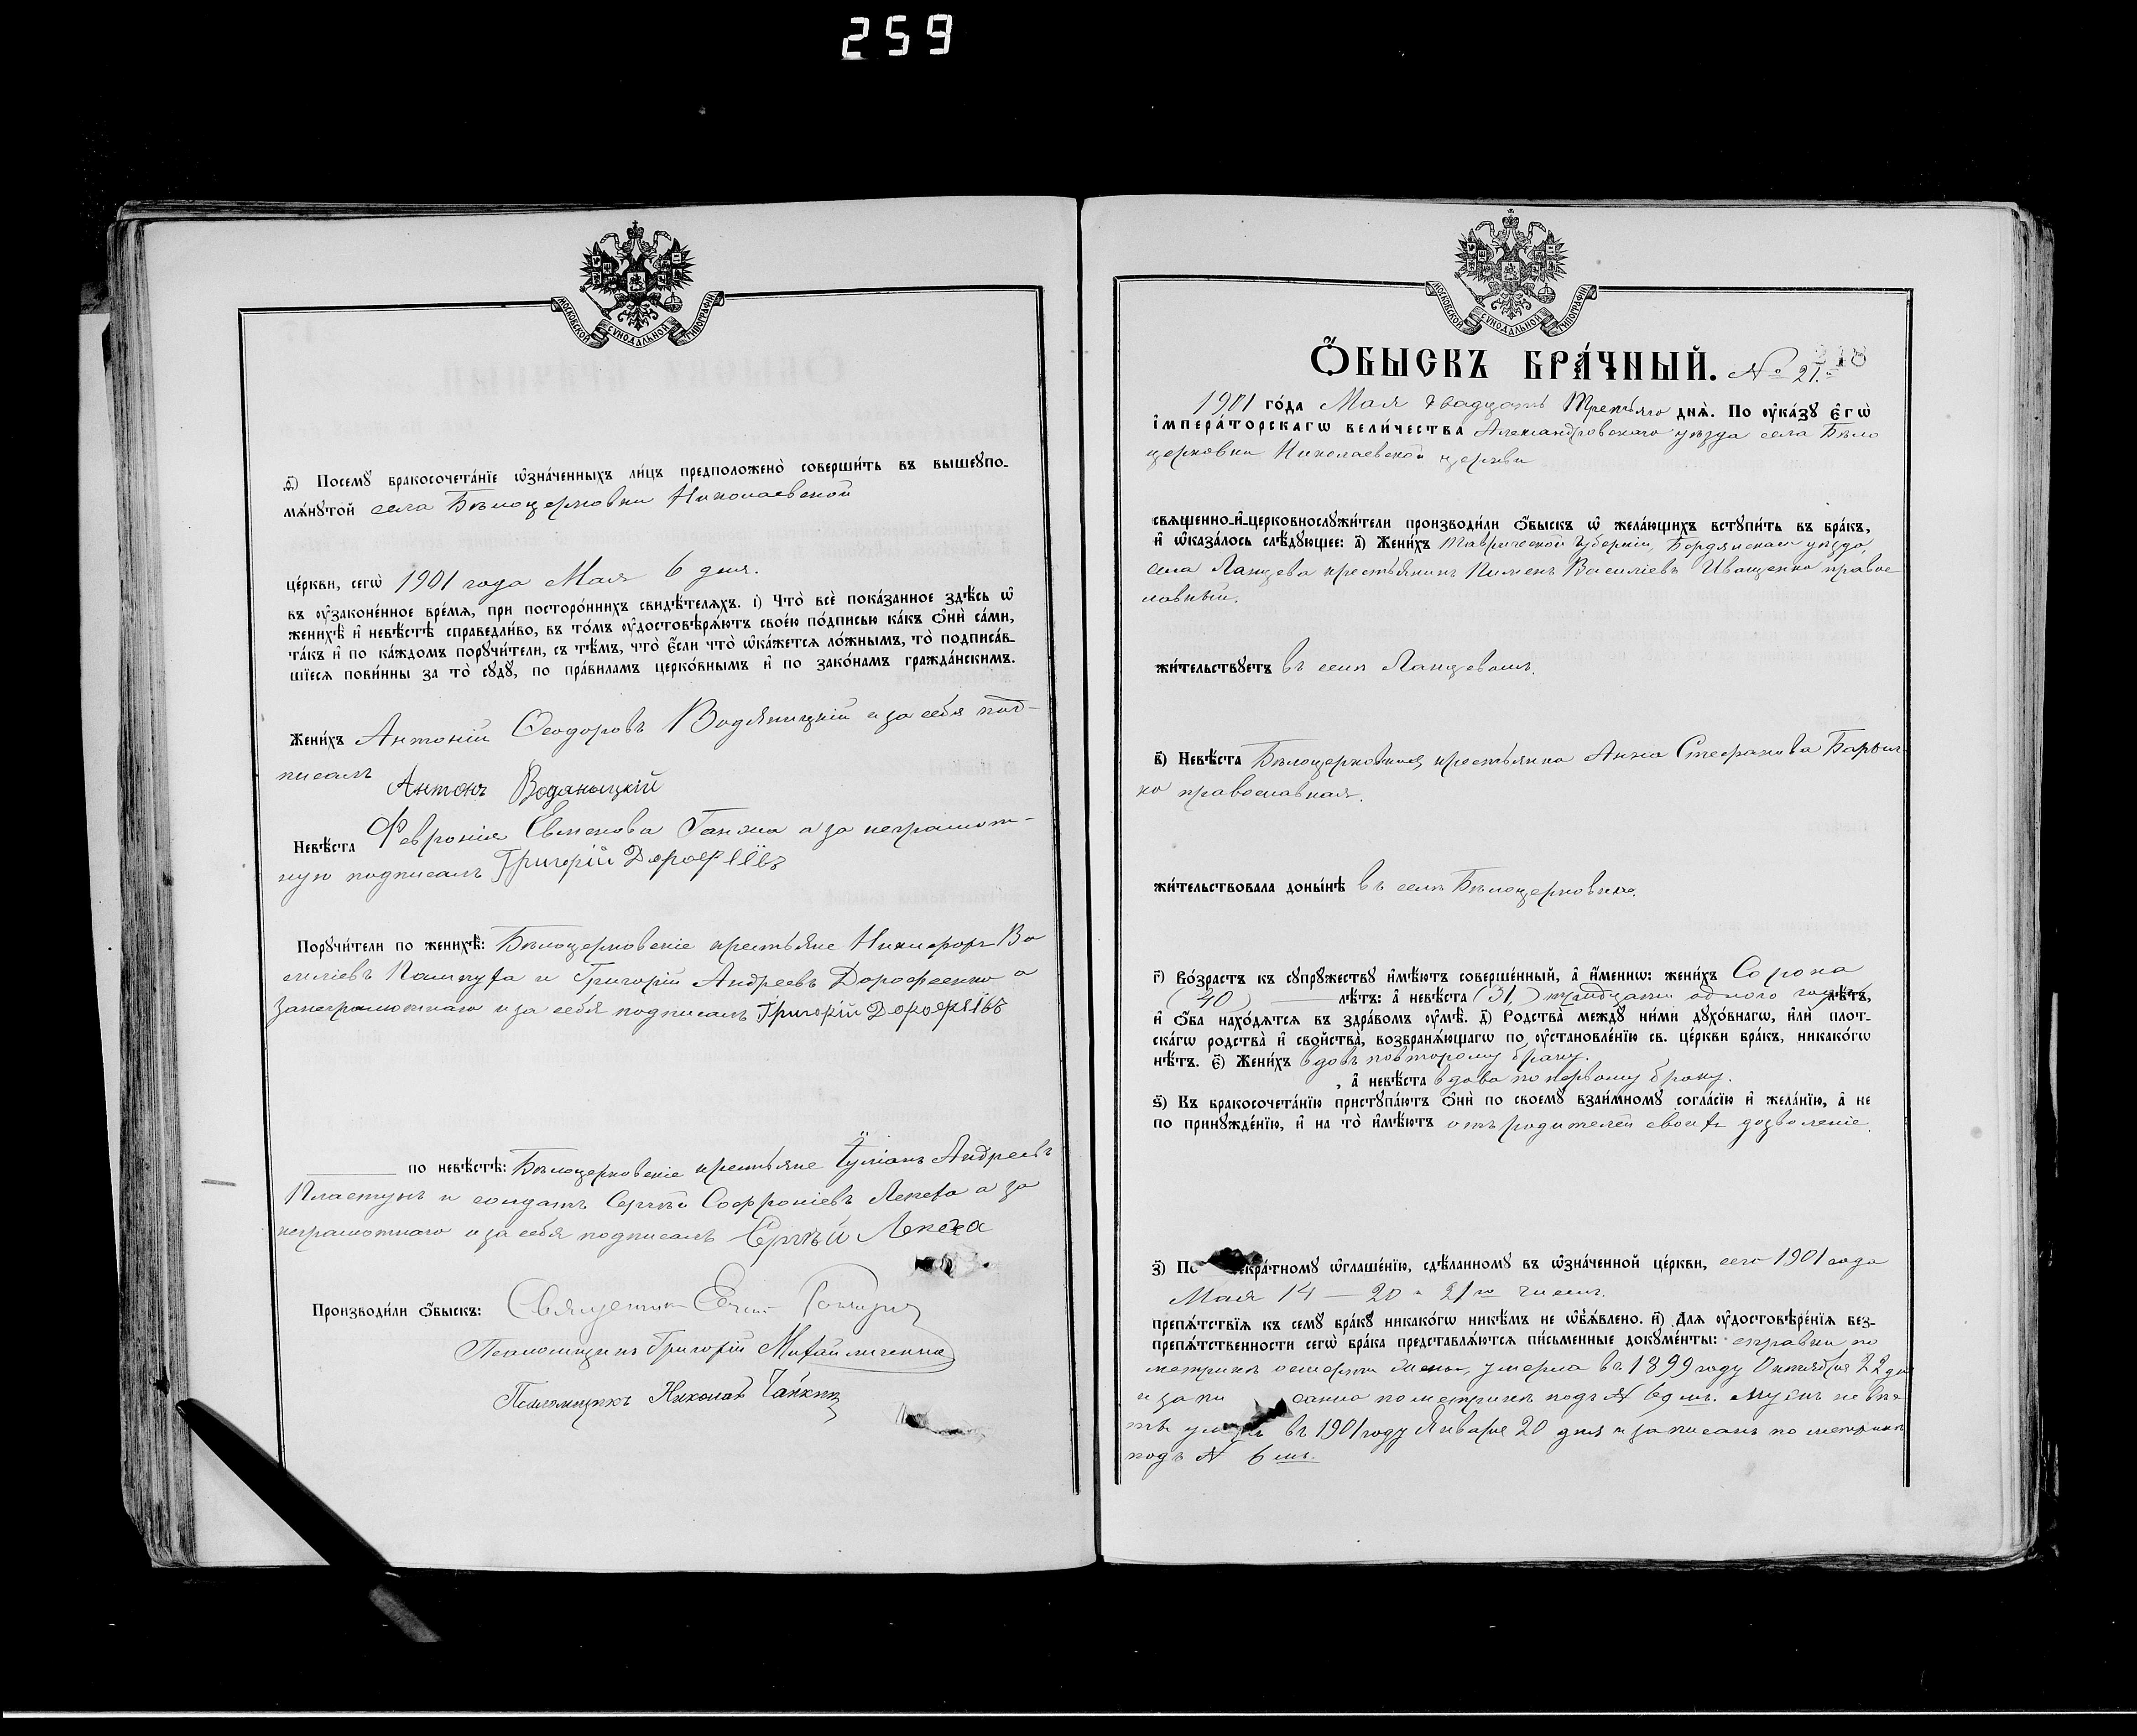 259
МОСКОВСКОЙ СѴНОДАЛЬНОЙ ТИПОГРАФІИ
ѳ҃) Посемꙋ бракосочета́нїе ѡ҆зна́ченныхъ ли́цъ предположено̀ соверши́ть въ вышеꙋпо-
мѧ́нꙋтой села Бѣлоцерковки Николаевской
це́ркви, сегѡ̀ 1901 года Мая 6 дня.
въ ᲂу҆законе́нное вре́мѧ, при посторо́ннихъ свидѣ́телѧхъ. і҃) Что̀ всѐ пока́занное здѣ́сь ѡ҆
женихѣ̀ и҆ невѣ́стѣ справедли́во, въ то́мъ ᲂу҆достовѣрѧ́ютъ свое́ю по́дписью ка́къ ѻ҆нѝ са́ми,
та́къ и҆ по ка́ждомъ порꙋчи́тели, съ тѣ́мъ, что̀ є҆́сли что̀ ѡ҆ка́жетсѧ ло́жнымъ, то̀ подписа́в-
шїесѧ пови́нны за то̀ сꙋдꙋ̀, по пра́виламъ церко́внымъ и҆ по зако́намъ гражда́нскимъ.
Жени́хъ Антоній Ѳеодоровъ Водяницкій и за себя под-
писалъ Антонъ Водяныцкій
Невѣ́ста Февронія Евменова Ганжа а за неграмот-
ную подписалъ Григорій Дороѳеевъ
Порꙋчи́тели по женихѣ̀: Бѣлоцерковскіе крестьяне Никифоръ Ва
силіевъ и Григорій Андреевъ Дорофеенко а
занеграмотнаго и за себя подписалъ Григорій Дорофеевъ
по невѣ́стѣ: Бѣлоцерковскіе крестьяне Іуліанъ Андреевъ
Пластунъ и солдатъ Сергѣй Софроніевъ Лекеха а за
неграмотнаго и за себя подписалъ Сергѣй Лекеха
Производи́ли ѻ҆́быскъ: Священникъ
Псаломщикъ Григорій Михайличенко
Псаломщикъ Николай
МОСКОВСКОЙ СѴНОДАЛЬНОЙ ТИПОГРАФІИ
Ѻ҆́БЫСКЪ БРА́ЧНЫЙ. № 21.
1901 го́да Мая двадцать Третьяго днѧ̀. По ᲂу҆ка́зꙋ є҆гѡ̀
і҆мпера́торскагѡ вели́чества Александровскаго уѣзда села Бѣло
церковки Николаевской церкви
свѧщенно-и҆-церковнослꙋжи́тели производи́ли ѻ҆́быскъ ѡ҆ жела́ющихъ встꙋпи́ть въ бра́къ,
и҆ ѡ҆каза́лось слѣ́дꙋющее: а҃) Жени́хъ Таврической Губерніи, Бердянскаго уѣзда,
села Ланцева крестьянинъ Пименъ Василіевъ Иващенко правос
лавный.
жи́тельствꙋетъ въ селѣ Ланцевомъ.
в҃) Невѣ́ста Бѣлоцерковская крестьянка Анна Стефанова
ко православная.
жи́тельствовала доны́нѣ въ селѣ Бѣлоцерковкѣ.
г҃) Во́растъ къ сꙋпрꙋ́жествꙋ и҆мѣ́ютъ соверше́нный, а҆ и҆́меннѡ: жени́хъ Сорока
(40) лѣ́тъ: а҆ невѣ́ста (31,) тридцати одного года лѣ́тъ,
и҆ ѻ҆́ба нахо́дѧтсѧ въ здра́вомъ ᲂу҆мѣ̀. д҃) Родства̀ междꙋ̀ ни́ми дꙋхо́внагѡ, и҆лѝ плот-
ска́гѡ родства̀ и҆ сво́йства̀, возбранѧ́ющагѡ по ᲂу҆становле́нїю св. це́ркви бра́къ, никако́гѡ
нѣ́тъ. є҃) Жени́хъ вдовъ по второму браку.
, а҆ невѣ́ста вдова по первому браку.
ѕ҃) Къ бракосочета́нїю пристꙋпа́ютъ ѻ҆нѝ по своемꙋ̀ взаи́мномꙋ согла́сїю и҆ жела́нїю, а҆ не
по принꙋжде́нїю, и҆ на то̀ и҆мѣ́ютъ отъ родителей своихъ дозволеніе.
з҃) По екра́тномꙋ ѡ҆глаше́нїю, сдѣ́ланномꙋ въ ѡ҆зна́ченной це́ркви, сего 1901 года
Мая 14 — 20 и 21го числъ.
препѧ́тствїѧ къ семꙋ̀ бра́кꙋ никако́гѡ никѣ́мъ не ѡ҆б̾ѧ́влено. и҃) Длѧ ᲂу҆достовѣре́нїѧ без-
препѧ́тственности сегѡ̀ бра́ка представлѧ́ютсѧ пи́сьменные докꙋме́нты: справки по
метрикѣ о смерти жены, умерла въ 1899 году Октября 22 дня
и запи сано по метрикѣ подъ № 69мъ. мужъ невѣс
ты умеръ въ 1901 году Января 20 дня и записанъ по метрикѣ
подъ № 6мъ.